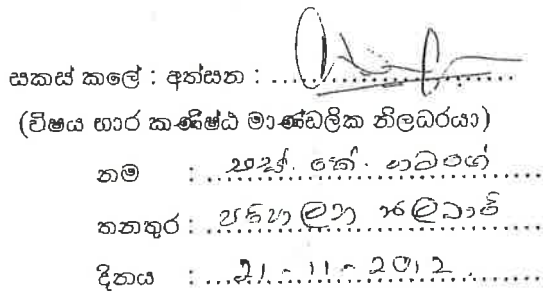 සකස් කලේ : අත්සන : ..............................
(විෂය භාර කණිෂ්ඨ මාණ්ඩලික නිලධරයා)
නම : එස්. කේ. ගමගේ
තනතුර : පරිපාලන නිලධාරි
දිනය : 21 - 11 - 2012